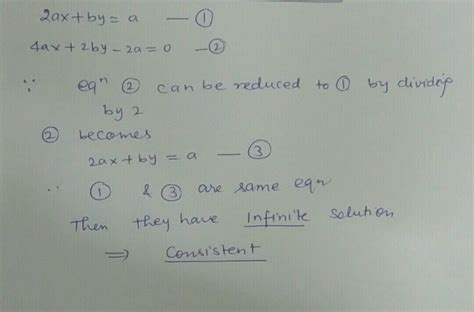 2ax + by = a — ①
4ax + 2by - 2a = 0 — ②
∵ eqⁿ ② can be reduced to ① by dividing
by 2
② becomes
2ax + by = a — ③
∴ ① & ③ are same eqn
Then they have Infinite solution
⇒ Consistent